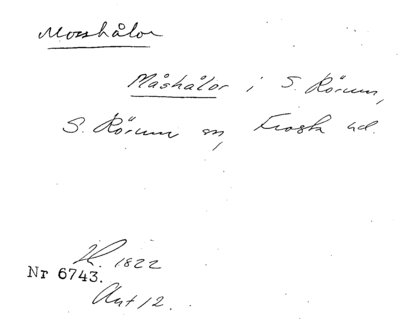 Mosshålor
Måshålor i S. Rörum,
S. Rörum sn, Frosta hd.
1822
Nr 6743.
Akt 12.